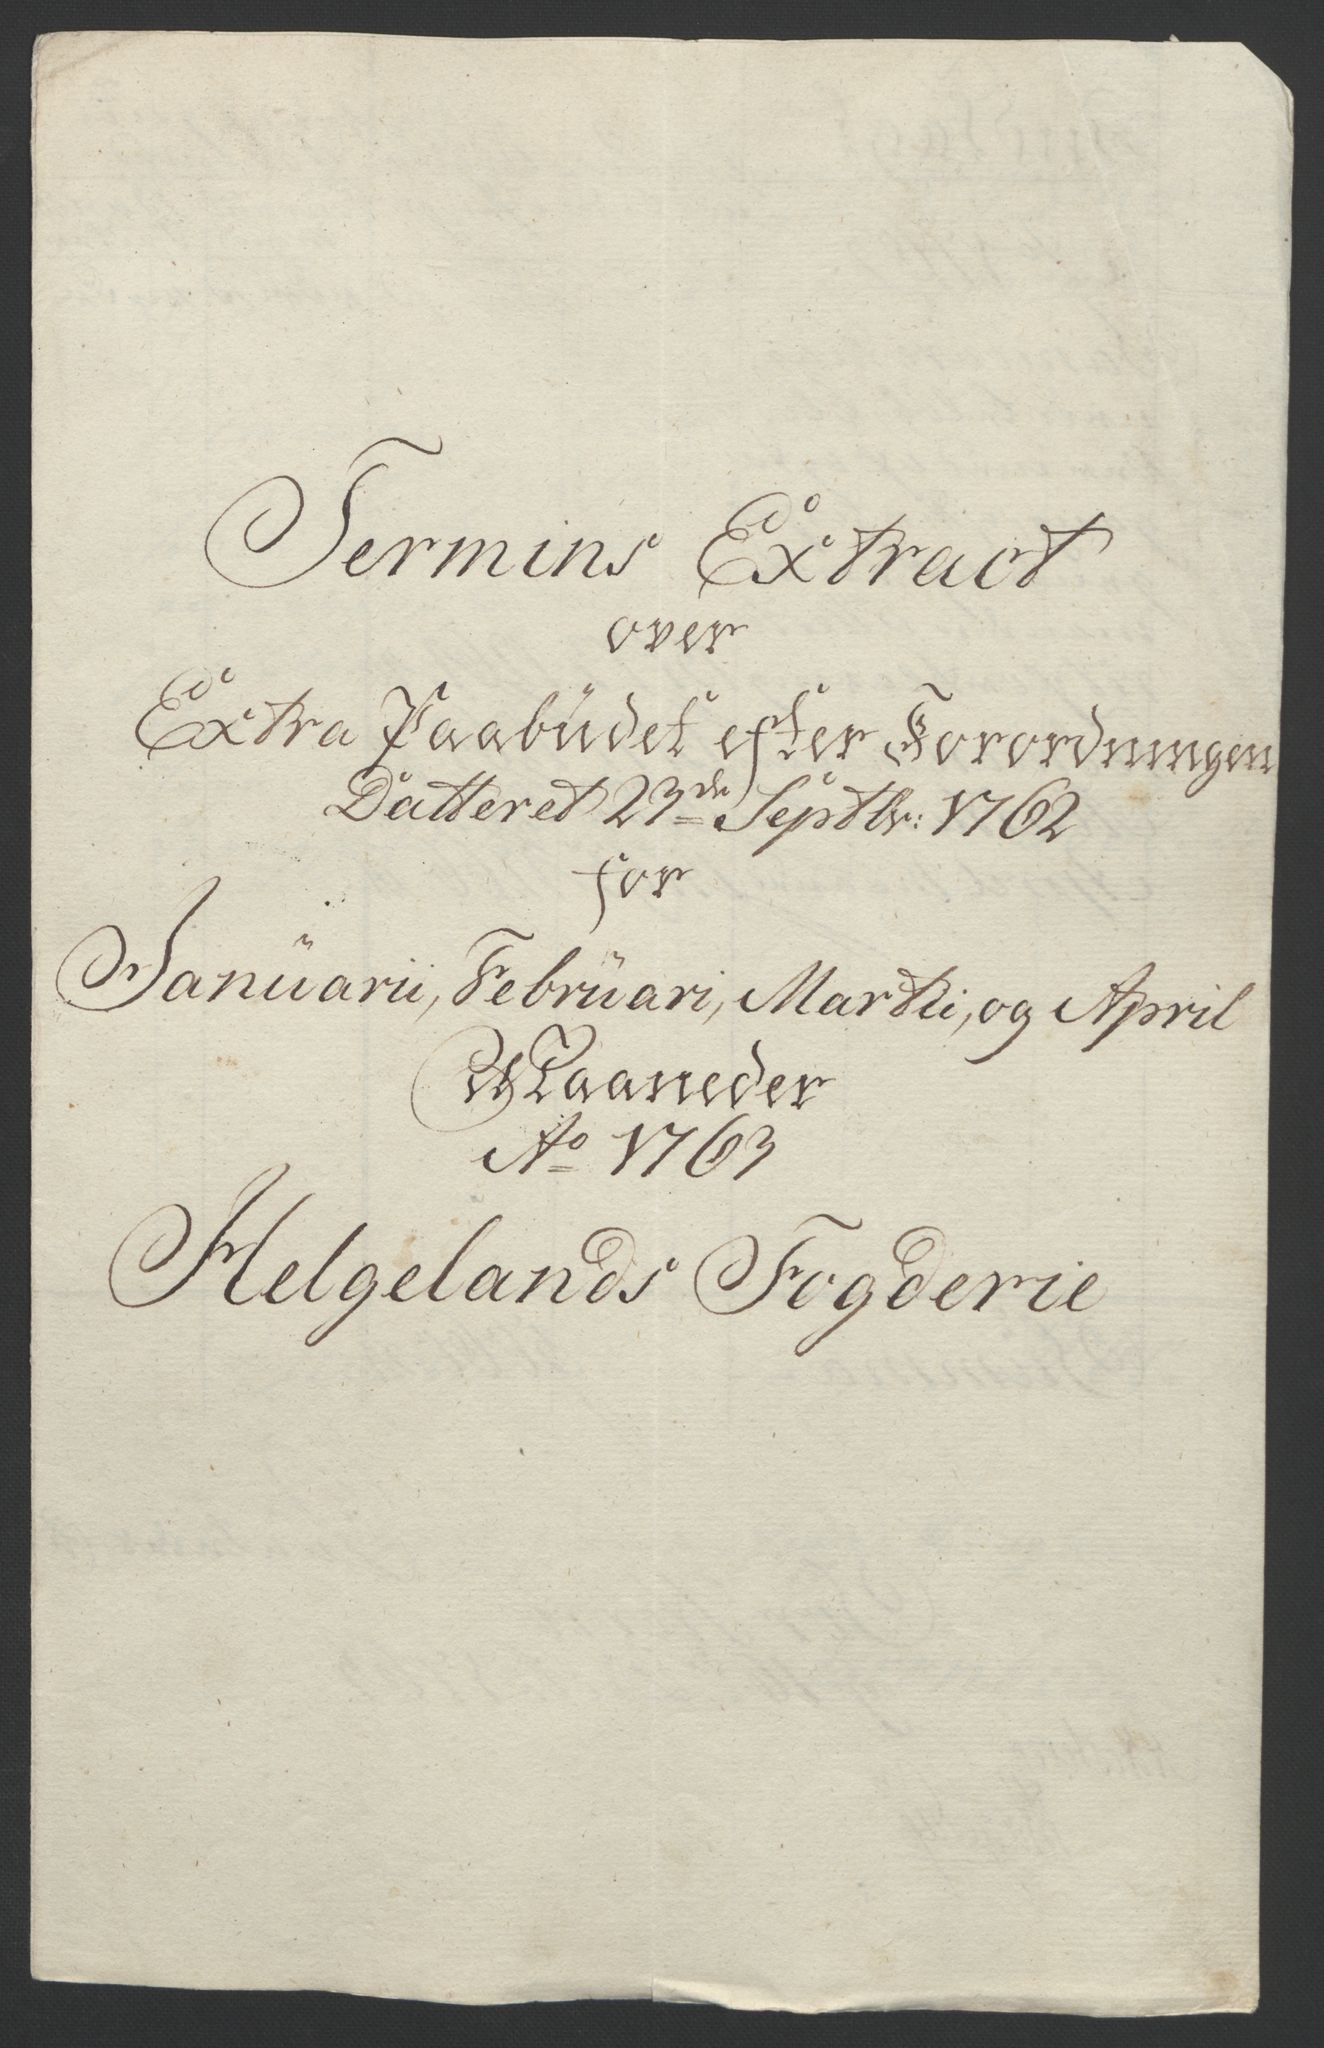 Termins Extract
over
Extra Paabüdet efter Forordningen
Datteret 23de Septbr: 1762
for
Janüarii, Febrüari, Martii, og April
Maaneder
Ao 1763
Helgelands Fogderie